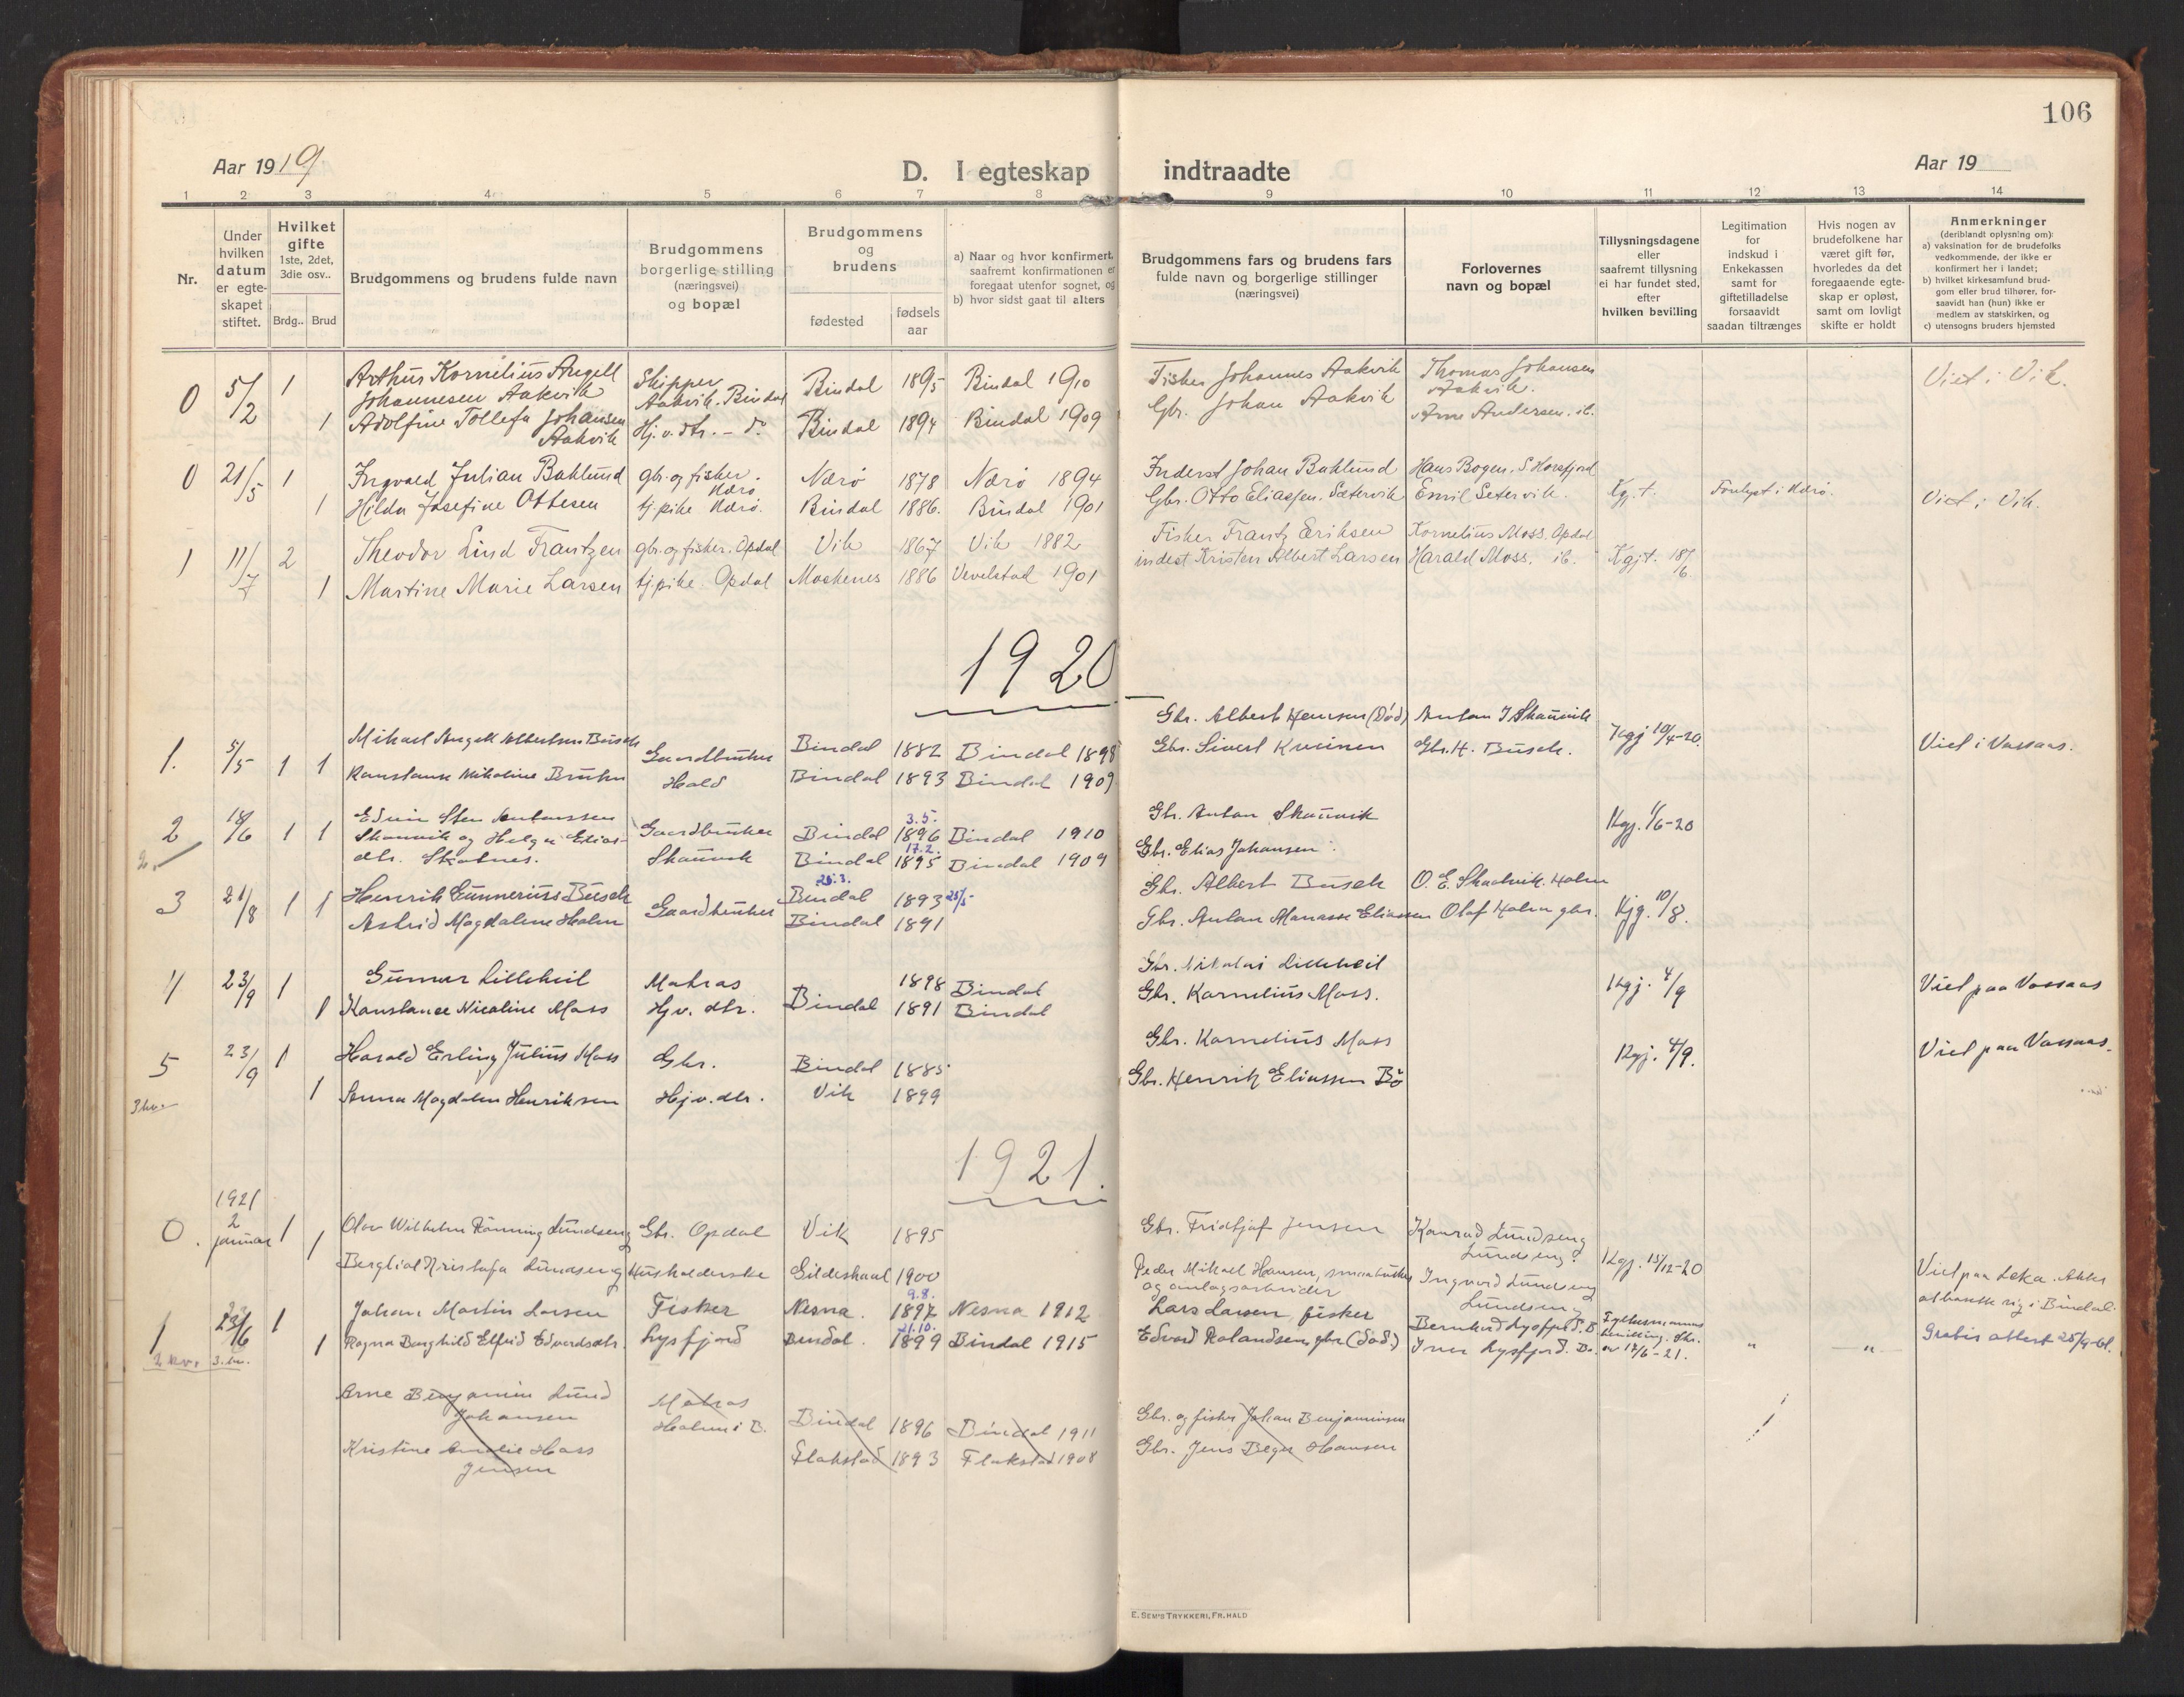 106
Aar 1919
D. I egteskap
indtraadte
Aar 19
1 2 3 4 5 6 7 8 9 10 11 12 13 14
Nr.
Under hvilken datum er egte-skapet stiftet.
Hvilket gifte 1ste, 2det, 3die osv..
Brdg.. Brud
Brudgommens og brudens fulde navn
Brudgommens borgerlige stilling (næringsvei) og bopæl
Brudgommens og brudens
fødested
fødsels aar
a) Naar og hvor konfirmert, saafremt konfirmationen er foregaat utenfor sognet, og
b) hvor sidst gaat til alters
Brudgommens fars og brudens fars fulde navn og borgerlige stillinger (næringsvei)
Forlovernes navn og bopæl
Tillysningsdagene eller saafremt tillysning ei har fundet sted, efter hvilken bevilling
Legitimation for indskud i Enkekassen samt for giftetilladelse forsaavidt saadan tiltrænges
Hvis nogen av brudefolkene har været gift før, hvorledes da det foregaaende egte-skap er opløst, samt om lovligt skifte er holdt
Anmerkninger (deriblandt oplysning om):
a) vaksination for de brudefolks vedkommende, der ikke er konfirmert her i landet;
b) hvilket kirkesamfund brud-gom eller brud tilhører, for-saavidt han (hun) ikke er medlem av statskirken, og
c) utensogns bruders hjemsted
0 5/2 1 Arthur Kornelius Angell Johannesen Aakvik Skipper Aakvik. Bindal Bindal 1895 Bindal 1910 Fisker Johannes Aakvik Thomas Johansen Aakvik. Viet i Vik.
1 Adolfine Tollefa Johansen Aakvik Hj.v.dtr. - do. Bindal 1894 Bindal 1909 Gbr. Johan Aakvik Arne Andersen. ib.
0 21/5 1 Ingvald Julian Buklund gbr. og fisker. Nærø Nærø 1878 Nærø 1894 Inderst Johan Buklund Hans Bogen. S. Horsfjord
1 Hilda Josefine Ottesen tj.pike Nærø. Bindal 1886. Bindal 1901 Gbr. Otto Eliassen. Sætervik Emil Setervik. Kgj.t. Forlyst i Nærø. Viet i Vik.
1 11/7 2 Theodor Lind Frantzen gbr. og fisker. Opdal Vik 1867 Vik 1882 Fisker Frantz Eriksen Kornelius Moss. Opdal
1 Martine Marie Larsen tj.pike Opdal Moskenes 1886 Vevelstad 1901 indest Kristen Albert Larsen Harald Moss. ib. Kgjt. 18/6.
1920
1. 5/5 1 1 Mikael Angell Albertsen Busch Gaardbruker Hald Bindal 1882 Bindal 1898 Gbr. Albert Hensen (Død) Anton J Skaanvik Kgj 10/4-20. Viet i Vassaas.
Konstanse Nikoline Bruhn Bindal 1893 Bindal 1909 Gbr. Sivert Kveinen Gbr. H. Busch.
2 18/6 1 1 Edvin Sten Antonssen Skaanvik og Helga Elias-dtr. Skotnes. Gaardbruker Skaanvik 3.5. Bindal 1896 Bindal 1910 Gbr. Anton Skaanvik Kgj. 1/6-20
17.2. Bindal 1895 Bindal 1909 Gbr. Elias Johansen.
3 21/8 1 1 Henrik Gunnerius Busch Gaardbruker 25.3. Bindal 1893 25/5 Gbr. Albert Busch O. E. Skadvik. Holm Kjg. 10/8.
Astrid Magdalene Holm Bindal 1891 Gbr. Anton Manasse Eliassen Olaf Holm gbr.
4 23/9 1 Gunnar Lilleheil Matros 1898 Bindal Gbr. Nikolai Lilleheil Kgj. 4/9 Viet paa Vassaas
1 Konstanse Nicoline Moss Hjv. dtr. Bindal 1891 Bindal Gbr. Kornelius Moss.
5 23/9 1 Harald Erling Julius Moss Gbr. Bindal 1885 Gbr. Kornelius Moss Kgj. 4/9. Viet paa Vassaas.
1 Anna Magdalen Henriksen Hjv. dtr. Vik 1899 Gbr. Henrik Eliassen Bö
1921.
0. 1921 2 januar 1 Olav Wilhelm Rönning Lundseng Gbr. Opdal Vik 1895 Gbr. Fridtjof Jensen Konrad Lundseng Lundseng.
1 Bergliot Kristofa Lundseng Husholderske Gildeskaal 1900 Peder Mikael Hansen, smaabruker og anlagsarbeider Ingvard Lundseng Lundseng Kgj. 15/12-20 Viet paa Leka. i Bindal.
1 23/6 1 Johan Martin Larsen Fisker Nesna. 9.8. 1897 Nesna 1912 Lars Larsen fisker Bernhard Lysfjord. B. Fylkesmannens bevilling. av 17/6-21. " -"- Gratis attest 25/9-61.
1 Ragna Borghild Elfrid Edvardsdtr. Lysfjord Bindal. 21.10. 1899 Bindal 1915 Edvard Rolandsen, gbr (død.) Iver Lysfjord. Do.
Arne Benjamin Lund Johansen Matros Holm i B. Bindal 1896 Bindal 1911 Gbr. og fisker Johan Benjaminsen
Kristine Amalie Hass Jensen Flakstad 1893 Flakstad 1908 Gbr. Jens Beger Hansen
E. SEM'S TRYKKERI, FR.HALD